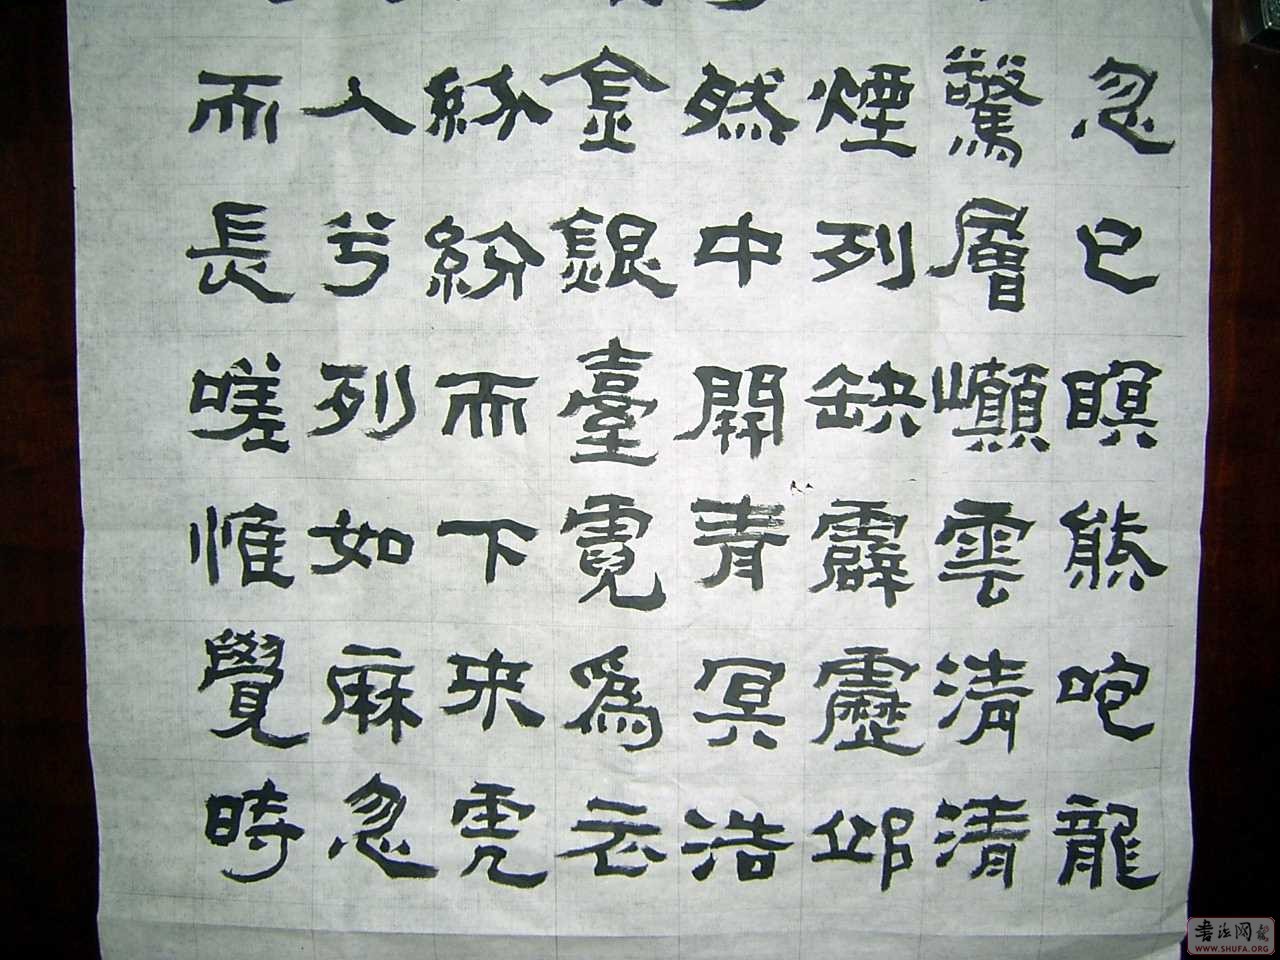 忽已瞑熊咆龍
驚層巔雲清清
煙列缺霹靂邱
然中開青冥浩
金銀臺霓爲衣
紛紛而下来虎
人兮列如麻忽
而長嗟惟覺時
書法网
WWW.SHUFA.ORG